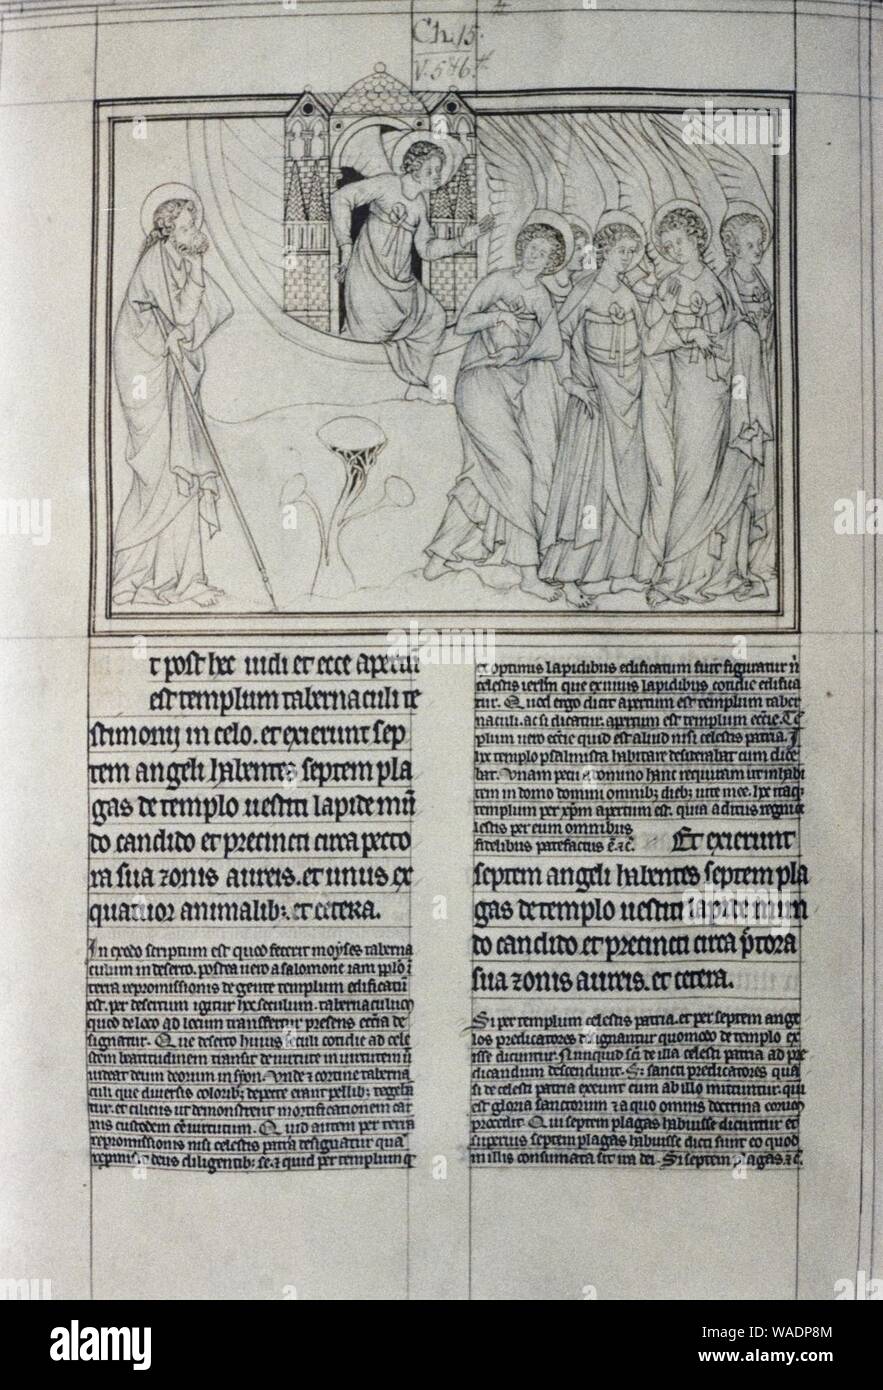 Ch. 15.
V. 5 & 6
t post hec uidi et ecce apertū
est templum tabernaculi te
stimonij in celo. et exierunt sep
tem angeli habentes septem pla
gas de templo uestiti lapide mū
do candido et precincti circa pecto
ra sua zonis aureis. et unus ex
quatuor animalib;. et cetera.
In exodo scriptum est quod fecerit moyses taberna
culum in deserto. postea uero a salomone iam pplo ī
terra repromissionis degente templum edificatū
est. per desertum igitur hoc seculum. tabernaculum
quod de loco ad locum transfertur presens eccīa de
signatur. Que deserto huius seculi cotidie ad cele
stem beatitudinem transit de uirtute in uirtutem ut
uideat deum deorum in syon. Vnde et cortine taberna
culi que diuersis colorib; depicte erant pellib; tegeban
tur. et ciliciis ut demonstrent mortificationem car
nis custodem eē uirtutum. Quid autem per terrā
repromissionis nisi celestis patria designatur quā
repromisit deus diligentib; se. et quid per templum q
et optimis lapidibus edificatum fuit figuratur nisi
celestis ierlm que ex uiuis lapidibus cotidie edifica
tur. Quod ergo dicit apertum est templum taber
naculi. ac si dicatur. apertum est templum eccīe. Tē
plum uero eccīe quid est aliud nisi celestis patria. I
hoc templo psalmista habitare desiderabat cum dice
bat. Vnam petii a domino hanc requiram ut inhabi
tem in domo domini omnib; dieb; uite mee. hoc itaq;
templum per xpm apertum est. quia aditus regni ce
lestis per eum omnibus
fidelibus patefactus ē. &c. Et exierunt
septem angeli habentes septem pla
gas de templo uestiti lapide mun
do candido. et precincti circa pectora
sua zonis aureis. et cetera.
Si per templum celestis patria. et per septem ange
los predicatores designantur quomodo de templo ex
isse dicuntur. Nunquid sci de illa celesti patria ad pre
dicandum descendunt. S; sancti predicatores qua
si de celesti patria exeunt cum ab illo mittuntur. qui
est gloria sanctorum & a quo omnis doctrina eorum
procedit. Qui septem plagas habuisse dicuntur et
superius septem plagas habuisse dicti sunt eo quod
in illis consumata sit ira dei. Si septem plagas. &c.
alamy
Image ID: WADP8M
www.alamy.com